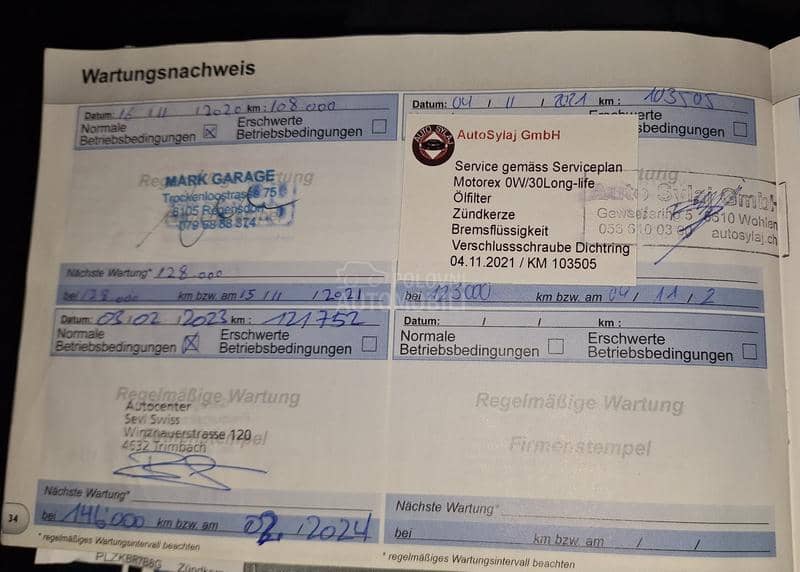 Wartungsnachweis
Datum: 16 / 11 / 2020 km: 108.000
Normale Betriebsbedingungen ☒ Erschwerte Betriebsbedingungen ☐
MARK GARAGE
Trockenloostrasse 75
8105 Regensdorf
Nächste Wartung* 128.000
bei 128.000 km bzw. am 15 / 11 / 2021
Datum: 04 / 11 / 2021 km: 103505
Erschwerte
Betriebsbedingungen ☐
AUTO SYLAJ
AutoSylaj GmbH
Service gemäss Serviceplan
Motorex 0W/30Long-life
Ölfilter
Zündkerze
Bremsflüssigkeit
Verschlussschraube Dichtring
04.11.2021 / KM 103505
Auto Sylaj GmbH
5610 Wohlen
autosylaj.ch
bei 123000 km bzw. am 04 / 11 / 2
POLOVNI
AUTOMOBILI
Datum: 03 / 02 / 2023 km: 121752
Normale Betriebsbedingungen ☒ Erschwerte Betriebsbedingungen ☐
Regelmäßige Wartung
Firmenstempel
Autocenter
Sevi Swiss
Winznauerstrasse 120
4632 Trimbach
Nächste Wartung*
bei 146000 km bzw. am 02 / 2024
Datum: / / km:
Normale Betriebsbedingungen ☐ Erschwerte Betriebsbedingungen ☐
Regelmäßige Wartung
Firmenstempel
Nächste Wartung*
bei km bzw. am / /
34
* regelmäßiges Wartungsintervall beachten
* regelmäßiges Wartungsintervall beachten